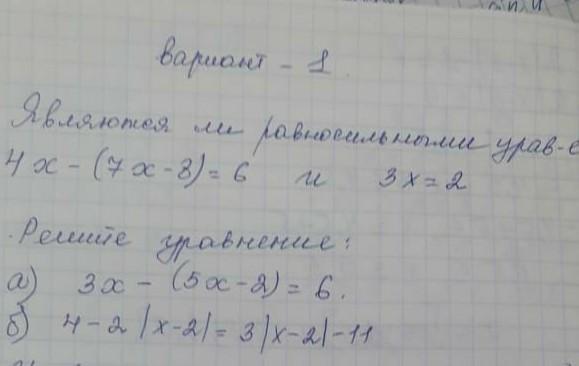 вариант - 1.
Являются ли равносильными урав-е
4x - (7x - 8) = 6 и 3x = 2
Решите уравнение:
а) 3x - (5x - 2) = 6.
б) 4 - 2 |x - 2| = 3|x - 2| - 11